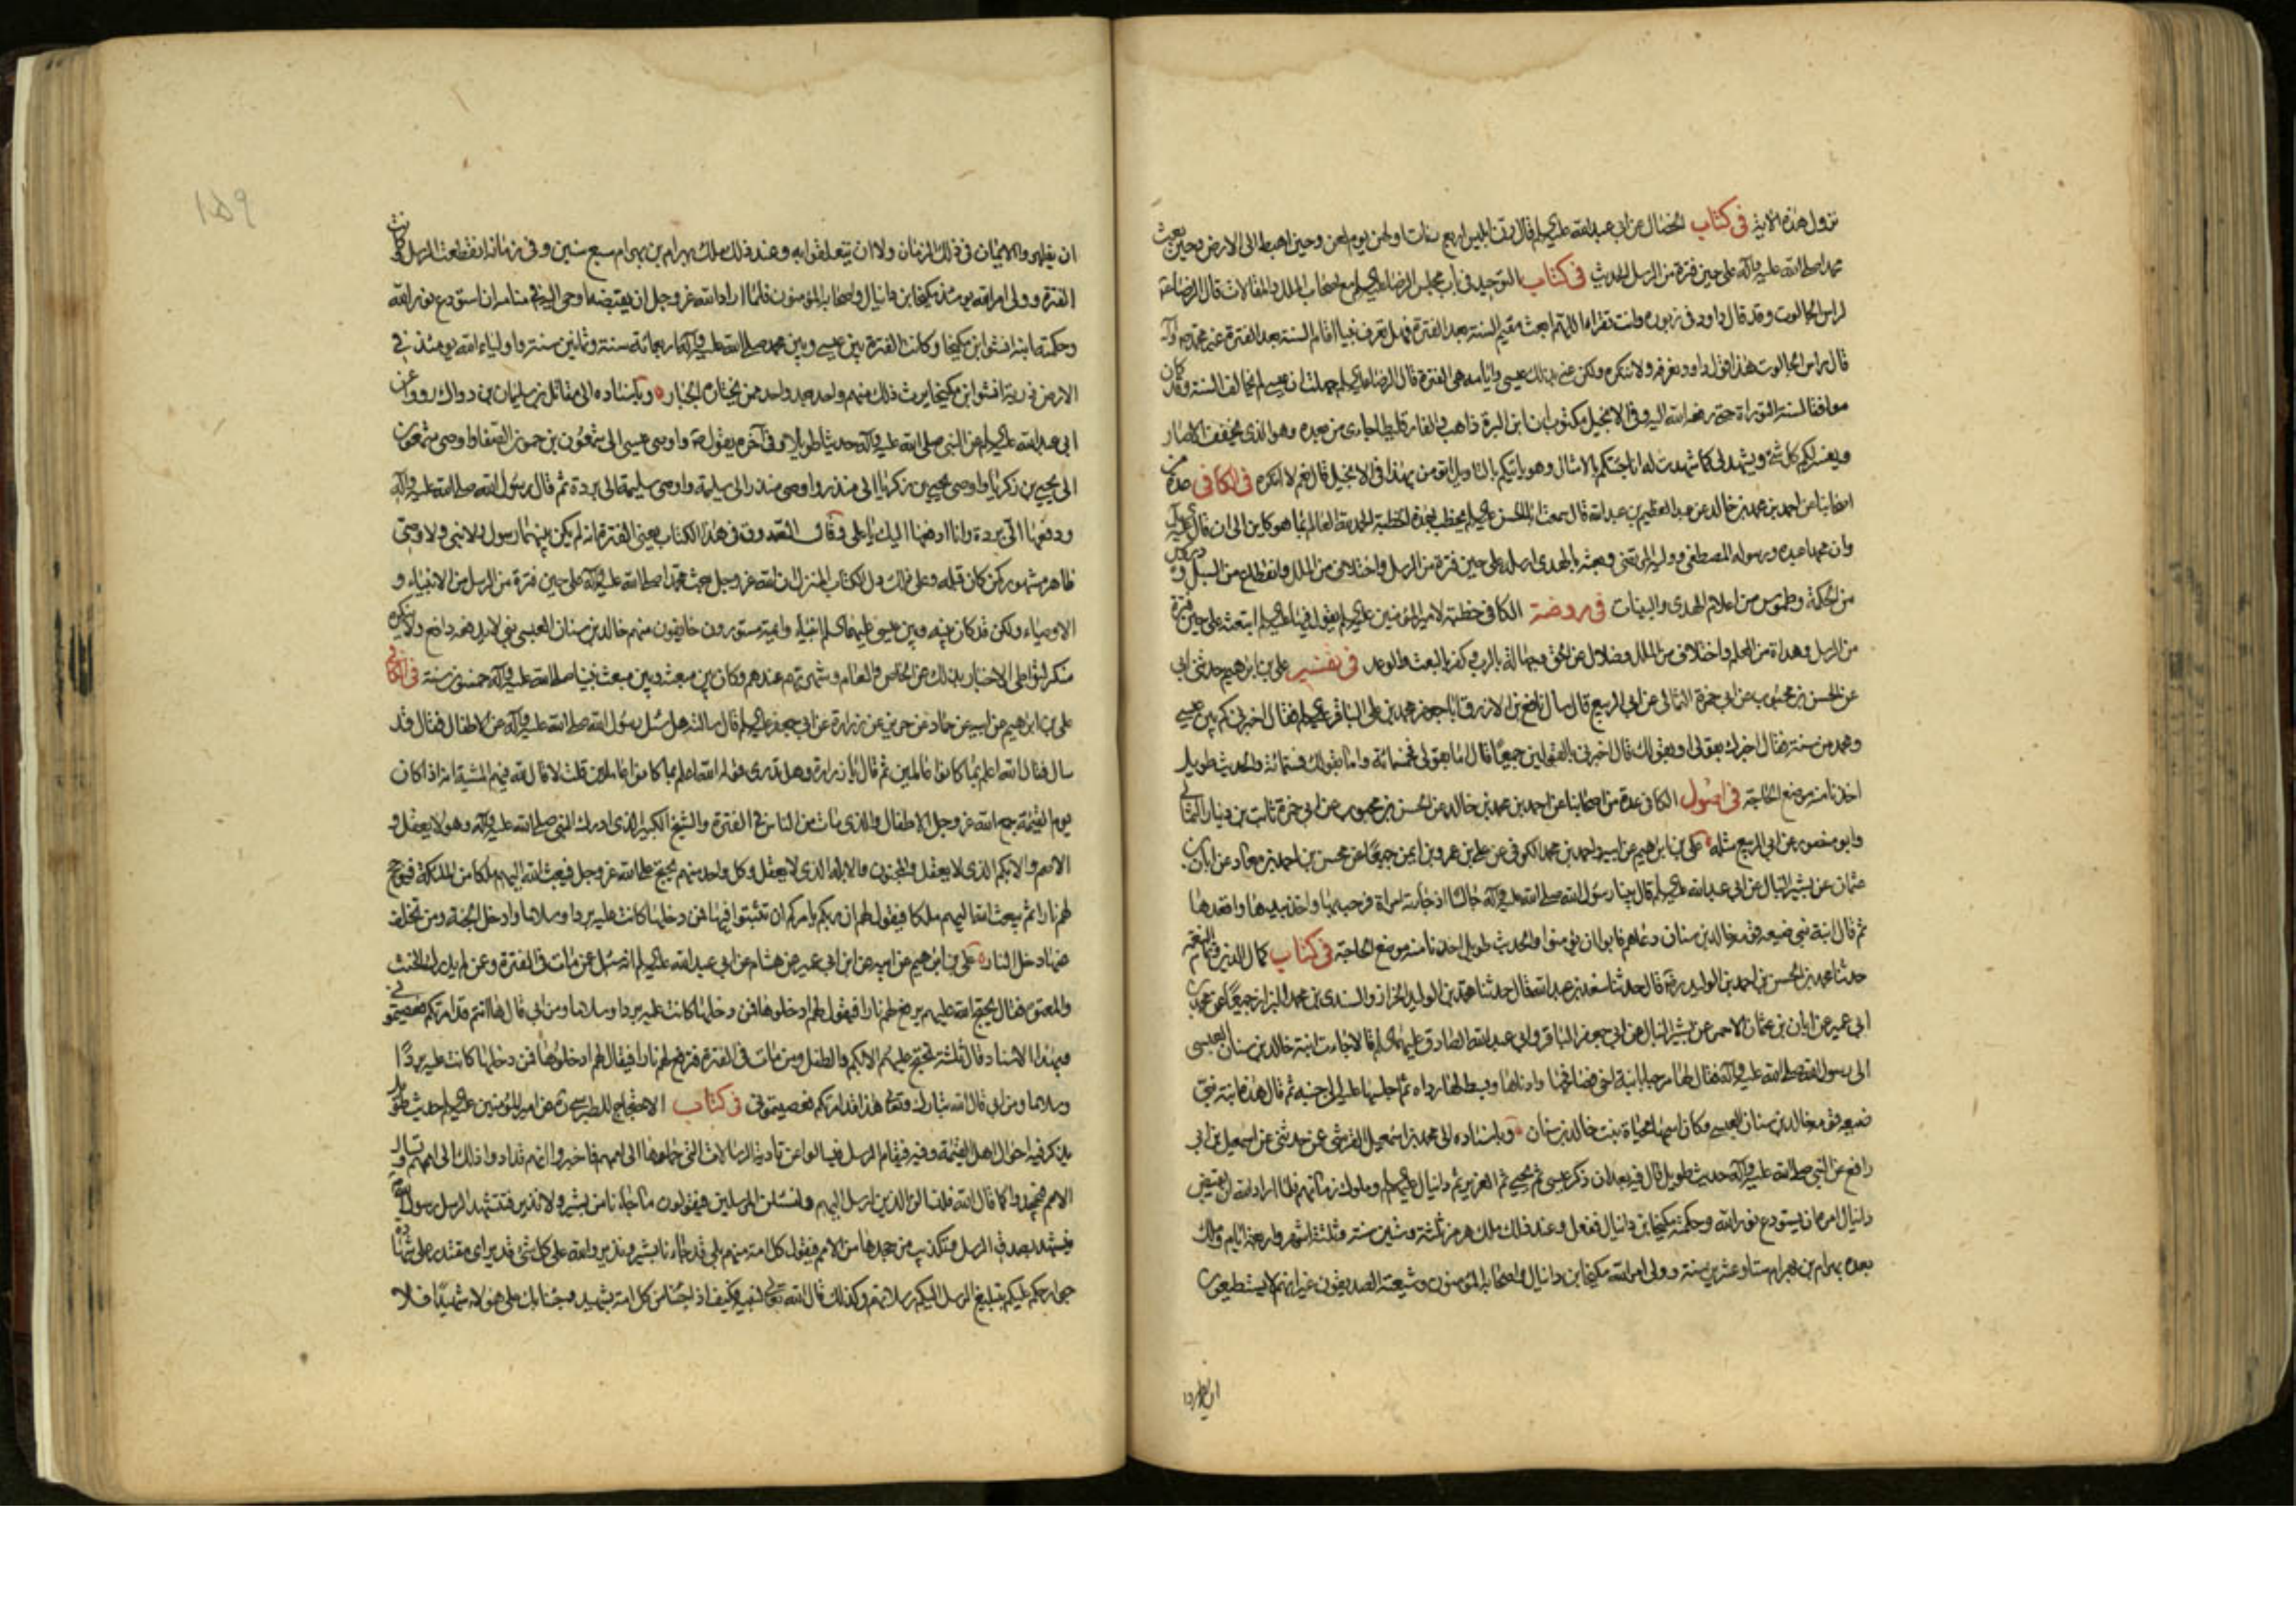 نزول هذه الآية في كتاب الخصال عن ابى عبد الله عليه السلم قال رن ابليس اربع رنات اولهن يوم لعن وحين اهبط الى الارض وحين بعث
محمد صلى الله عليه وآله على حين فترة من الرسل الحديث في كتاب التوحيد في باب مجلس الرضا عليه السلم مع اصحاب الملل والمقالات قال الرضا
لراس الجالوت وقد قال داود في زبوره وانت تقراه اللهم ابعث مقيم السنة بعد الفترة فهل تعرف نبيا اقام السنة بعد الفترة غير محمد
قال راس الجالوت هذا قول داود نعرفه ولا ننكره ولكن عنى بذلك عيسى وايامه هى الفترة قال الرضا عليه السلم جهلت ان عيسى لم يخالف السنة وقد كان
موافقا لسنة التوراة حتى رفعه الله اليه وفي الانجيل مكتوب ان ابن البرة ذاهب والفارقليطا جاءى من بعده وهو الذى يخفف الاصار
ويفسر لكم كل شئ ويشهد لى كما شهدت له انا جئتكم بالامثال وهو ياتيكم بالتاويل اتؤمن بهذا في الانجيل قال نعم لا انكره في الكافى عدة من
اصحابنا عن احمد بن محمد بن خالد عن عبد العظيم بن عبد الله قال سمعت ابا الحسن عليه السلم يخطب بهذه الخطبة الحمد لله العالم بما هو كاين الى ان قال
وان محمدا عبده ورسوله المصطفى ووليه المرتضى وبعثه بالهدى ارسله على حين فترة من الرسل واختلاف من الملل وانقطاع من السبل ودروس
من الحكمة وطموس من اعلام الهدى والبينات في روضة الكافى خطبة لامير المؤمنين عليه السلم يقول فيها عليه السلم ابتعثه على حين فترة
من الرسل وهداة من العلم واختلاف من الملل وضلال عن الحق وجهالة بالرب وكفر بالبعث والوعد في تفسير على بن ابرهيم حدثنى ابى
عن الحسن بن محبوب عن ابى حمزة الثمالى عن ابى الربيع قال سال نافع بن الازرق ابا جعفر محمد بن على الباقر عليه السلم فقال اخبرنى كم بين عيسى
ومحمد من سنة فقال اخبرك بقولى او بقولك قال اخبرنى بالقولين جميعا قال اما بقولى فخمسمائة واما بقولك فستمائة والحديث طويل
اخذنا منه موضع الحاجة في اصول الكافى عدة من اصحابنا عن احمد بن محمد بن خالد عن الحسن بن محبوب عن ابى حمزة ثابت بن دينار الثمالى
وابو منصور عن ابى الربيع مثله على بن ابرهيم عن ابيه واحمد بن محمد الكوفى عن على بن عمرو بن ايمن جميعا عن محسن بن احمد بن معاذ عن ابان بن
عثمان عن بشير النبال عن ابى عبد الله عليه السلم قال بينا رسول الله صلى الله عليه وآله جالسا اذ جاءته امراة فرحب بها واخذ بيدها واقعدها
ثم قال ابنة نبى ضيعه قومه خالد بن سنان دعاهم فابوا ان يؤمنوا والحديث طويل اخذنا منه موضع الحاجة في كتاب كمال الدين وتمام النعمة
حدثنا محمد بن الحسن بن احمد بن الوليد قال حدثنا سعد بن عبد الله قال حدثنا محمد بن الوليد الخزاز والسندى بن محمد البزاز جميعا عن محمد بن
ابى عمير عن ابان بن عثمان الاحمر عن بشير النبال عن ابى جعفر الباقر وابى عبد الله الصادق عليهما السلم قالا جاءت ابنة خالد بن سنان العبسى
الى رسول الله صلى الله عليه وآله فقال لها مرحبا بابنة اخى فصافحها وادناها وبسط لها رداه ثم اجلسها عليه الى جنبه ثم قال هذه ابنة نبى
ضيعه قومه خالد بن سنان العبسى وكان اسمها محياة بنت خالد بن سنان وباسناده الى محمد بن اسمعيل القرشى عن من حدثه عن اسمعيل بن ابى
رافع عن النبى صلى الله عليه وآله حديث طويل قال فيه بعد ان ذكر عيسى ثم يحيى ثم العزير ثم دانيال عليهم السلم وملوك زمانهم فلما اراد الله ان يقبض
دانيال امره ان يستودع نور الله وحكمته مكيخا بن دانيال ففعل وعند ذلك ملك هرمز ثلثة وستين سنة وثلثة اشهر واربعة ايام وملك
بعده بهرام بن بهرام ستا وعشرين سنة وولى امر الله مكيخا بن دانيال واصحابه المؤمنون وشيعته الصديقون غير انهم لا يستطيعون
ان يظهروا
١٥٩
ان يظهروا الايمان في ذلك الزمان ولا ان يتعلقوا به وعند ذلك ملك بهرام بن بهرام سبع سنين وفي زمانه انقطعت الرسل فكانت
الفترة وولى امر الله يومئذ مكيخا بن دانيال واصحابه المؤمنون فلما اراد الله عز وجل ان يقبضه اوحى اليه في منامه ان استودع نور الله
وحكمته ابنه انشوا بن مكيخا وكانت الفترة بين عيسى وبين محمد صلى الله عليه وآله اربعمائة سنة وثمانين سنة واولياء الله يومئذ في
الارض ذرية انشوا بن مكيخا يرث ذلك منهم واحد بعد واحد ممن يختاره الجبار وباسناده الى مقاتل بن سليمان بن دوال روو عن
ابى عبد الله عليه السلم عن النبى صلى الله عليه وآله حديثا طويلا وفي آخره يقول واوصى عيسى الى شمعون بن حمون الصفا واوصى شمعون
الى يحيى بن زكريا واوصى يحيى بن زكريا الى منذر واوصى منذر الى سليمة واوصى سليمة الى بردة ثم قال رسول الله صلى الله عليه وآله
ودفعها الى بردة وانا ادفعها اليك يا على وقال الصدوق في هذا الكتاب معنى الفترة انه لم يكن بينهما رسول ولا نبى ولا وصى
ظاهر مشهور كمن كان قبله وعلى ذلك دل الكتاب المنزل ان الله عز وجل بعث محمدا صلى الله عليه وآله على حين فترة من الرسل من الانبياء و
الاوصياء ولكن قد كان بينه وبين عيسى عليهما السلم انبياء وائمة مستورون خائفون منهم خالد بن سنان العبسى نبى لا يدفعه دافع ولا ينكره
منكر لتواطى الاخبار بذلك عن الخاص والعام وشهرته عندهم وكان بين مبعثه وبين مبعث نبينا صلى الله عليه وآله خمسون سنة في الكافى
على بن ابرهيم عن ابيه عن حماد عن حريز عن زرارة عن ابى جعفر عليه السلم قال سالته هل سئل رسول الله صلى الله عليه وآله عن الاطفال فقال قد
سال فقال الله اعلم بما كانوا عاملين ثم قال يا زرارة وهل تدرى قوله الله اعلم بما كانوا عاملين قلت لا قال لله فيهم المشية انه اذا كان
يوم القيمة جمع الله عز وجل الاطفال والذى مات من الناس في الفترة والشيخ الكبير الذى ادرك النبى صلى الله عليه وآله وهو لا يعقل و
الاصم والابكم الذى لا يعقل والمجنون والابله الذى لا يعقل وكل واحد منهم يحتج على الله عز وجل فيبعث الله اليهم ملكا من الملئكة فيؤجج
لهم نارا ثم يبعث الله اليهم ملكا فيقول لهم ان ربكم يامركم ان تثبوا فيها فمن دخلها كانت عليه بردا وسلاما وادخل الجنة ومن تخلف
عنها دخل النار على بن ابرهيم عن ابيه عن ابن ابى عمير عن هشام عن ابى عبد الله عليه السلم انه سئل عن من مات في الفترة وعن من لم يدرك الحنث
والمعتوه فقال يحتج الله عليهم يرفع لهم نارا فيقول لهم ادخلوها فمن دخلها كانت عليه بردا وسلاما ومن ابى قال ها انتم قد امرتكم فعصيتمونى
وبهذا الاسناد قال ثلثة يحتج عليهم الابكم والطفل ومن مات في الفترة فترفع لهم نارا فيقال لهم ادخلوها فمن دخلها كانت عليه بردا
وسلاما ومن ابى قال الله تبارك وتعالى هذا قد امرتكم فعصيتمونى في كتاب الاحتجاج للطبرسى عن امير المؤمنين عليه السلم حديث طويل
يذكر فيه احوال اهل القيمة وفيه فيقام الرسل فيسالوا عن تادية الرسالات التى حملوها الى اممهم فاخبروا انهم قد ادوا ذلك الى اممهم وتسال
الامم فيجحدوا كما قال الله فلنسالن الذين ارسل اليهم ولنسئلن المرسلين فيقولون ما جاءنا من بشير ولا نذير فتستشهد الرسل رسول الله
فيشهد بصدق الرسل وتكذيب من جحدها من الامم فيقول لكل امة منهم بلى قد جاءنا بشير ونذير والله على كل شئ قدير اى مقتدر على شهادة
جوارحكم عليكم بتبليغ الرسل اليكم رسالاتهم وكذلك قال الله تعالى لنبيه فكيف اذا جئنا من كل امة بشهيد وجئنا بك على هؤلاء شهيدا فلا